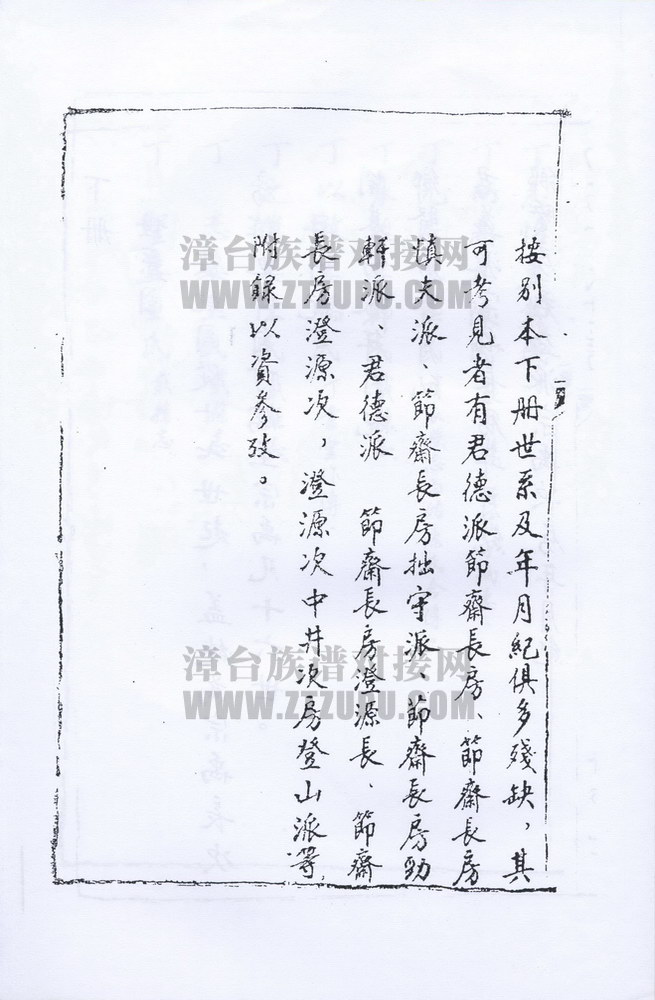 按别本下册世系及年月紀俱多殘缺，其
可考見者有君德派節齋長房、節齋長房
慎夫派、節齋長房拙守派、節齋長房勁
軒派、君德派　節齋長房澄源長、節齋
長房澄源次，澄源次中井次房登山派等，
附錄以資參攷。
漳台族谱对接网
WWW.ZTZUPU.COM
漳台族谱对接网
WWW.ZTZUPU.COM